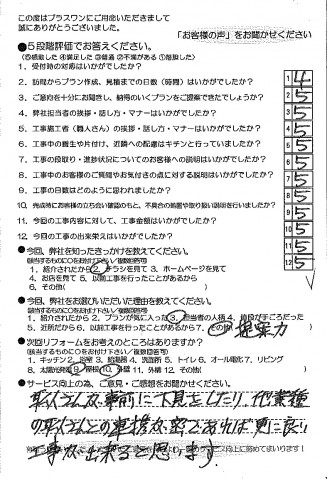 この度はプラスワンにご用命いただきまして
誠にありがとうございました。
「お客様の声」をお聞かせください
●5段階評価でお答えください。
(⑤感動した ④満足した ③普通 ②不満がある ①落胆した)
1. 受付時の対応はいかがでしたか?
2. 訪問からプラン作成、見積までの日数(時間)はいかがでしたか?
3. ご意向を十分にお聞きし、納得のいくプランをご提案できたでしょうか?
4. 弊社担当者の挨拶・話し方・マナーはいかがでしたか?
5. 工事施工者(職人さん)の挨拶・話し方・マナーはいかがでしたか?
6. 工事中の養生や片付け、近隣への配慮はキチンと行っていましたか?
7. 工事の段取り・進捗状況についてのお客様への説明はいかがでしたか?
8. 工事中のお客様のご質問やお気付きの点に対する説明はいかがでしたか?
9. 工事の日数はどのように思われましたか?
10. 完成時にお客様の立ち合い確認のもと、不具合の処置や取り扱い説明を行いましたか?
11. 今回の工事内容に対して、工事金額はいかがでしたか?
12. 今回の工事の出来栄えはいかがでしたか?
1 4
2 5
3 5
4 5
5 5
6 5
7 5
8 5
9 5
10 5
11 5
12 5
●今回、弊社を知ったきっかけを教えてください。
(該当するものに○をお付け下さい/複数回答可)
1. 紹介されたから 2. チラシを見て 3. ホームページを見て
4. お店を見て 5. 以前工事を行ったことがあるから
6. その他( )
●今回、弊社をお選びいただいた理由を教えてください。
(該当するものに○をお付け下さい/複数回答可)
1. 紹介されたから 2. プランが気に入った 3. 担当者の人柄 4. 値段が手ごろだった
5. 近所だから 6. 以前工事を行ったことがあるから 7. その他( 提案力 )
●次回リフォームをお考えのところはありますか?
(該当するものに○をお付け下さい/複数回答可)
1. キッチン 2. 浴室 3. 給湯器 4. 洗面所 5. トイレ 6. オール電化 7. リビング
8. 太陽光発電 9. 屋根 10. 外壁 11. 外構 12. その他( )
●サービス向上の為、ご意見・ご感想をお聞かせください。
職人さんが事前に下見をしたり、他業種
の職人さんとの連携が密であれば更に良い
工事が出来ると思います。